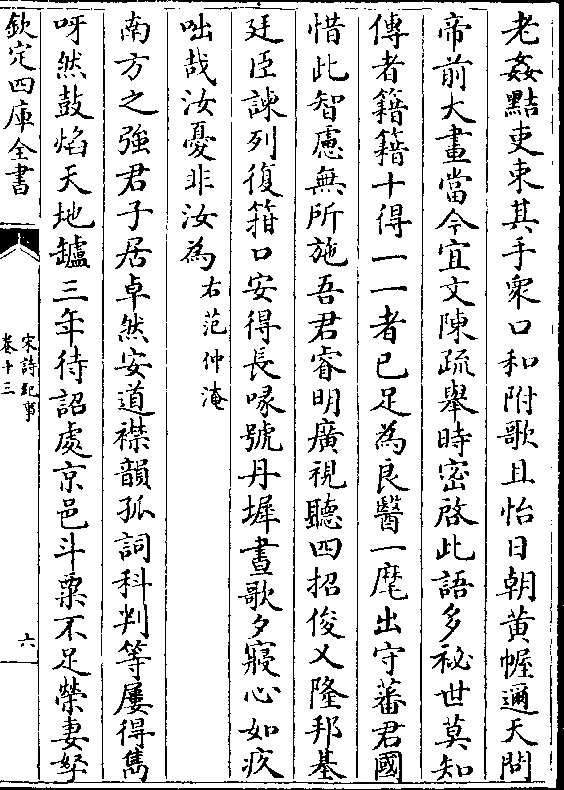 老姦黠吏束其手衆口和附歌且怡日朝黄幄邇天問
帝前大畫當今宜文陳疏舉時密啓此語多祕世莫知
傳者籍籍十得一一者已足為良醫一麾出守蕃君國
惜此智慮無所施吾君睿明廣視聽四招俊乂隆邦基
廷臣諫列復箝口安得長喙號丹墀晝歌夕寢心如疚
咄哉汝憂非汝為右范仲淹
南方之強君子居卓然安道襟韻孤詞科判等屢得雋
呀然鼓焰天地鑪三年待詔處京邑斗粟不足榮妻孥
欽定四庫全書
宋詩紀事
卷十三
六